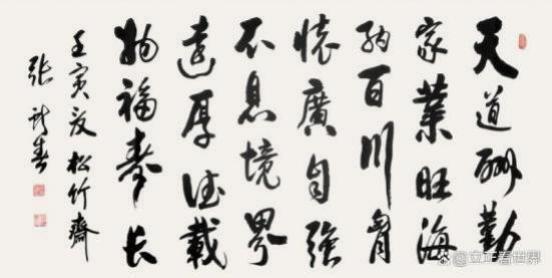 天道酬勤
家業旺海
納百川胷
懷廣自強
不息境界
遠厚德載
物福壽长
壬寅夏松竹齋
張
@立正看世界